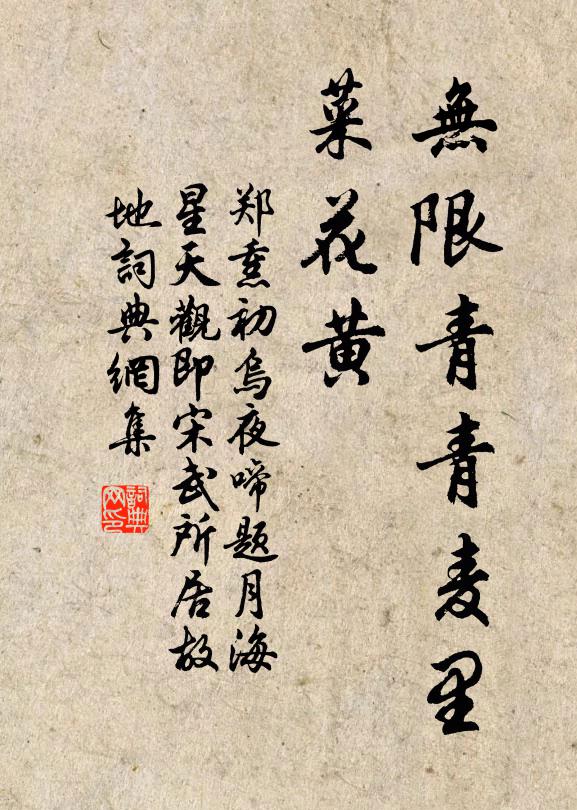 無限青青麦里
菜花黄
郑熏初烏夜啼题月海
星天觀即宋武所居故
地詞典網集
詞典
网印